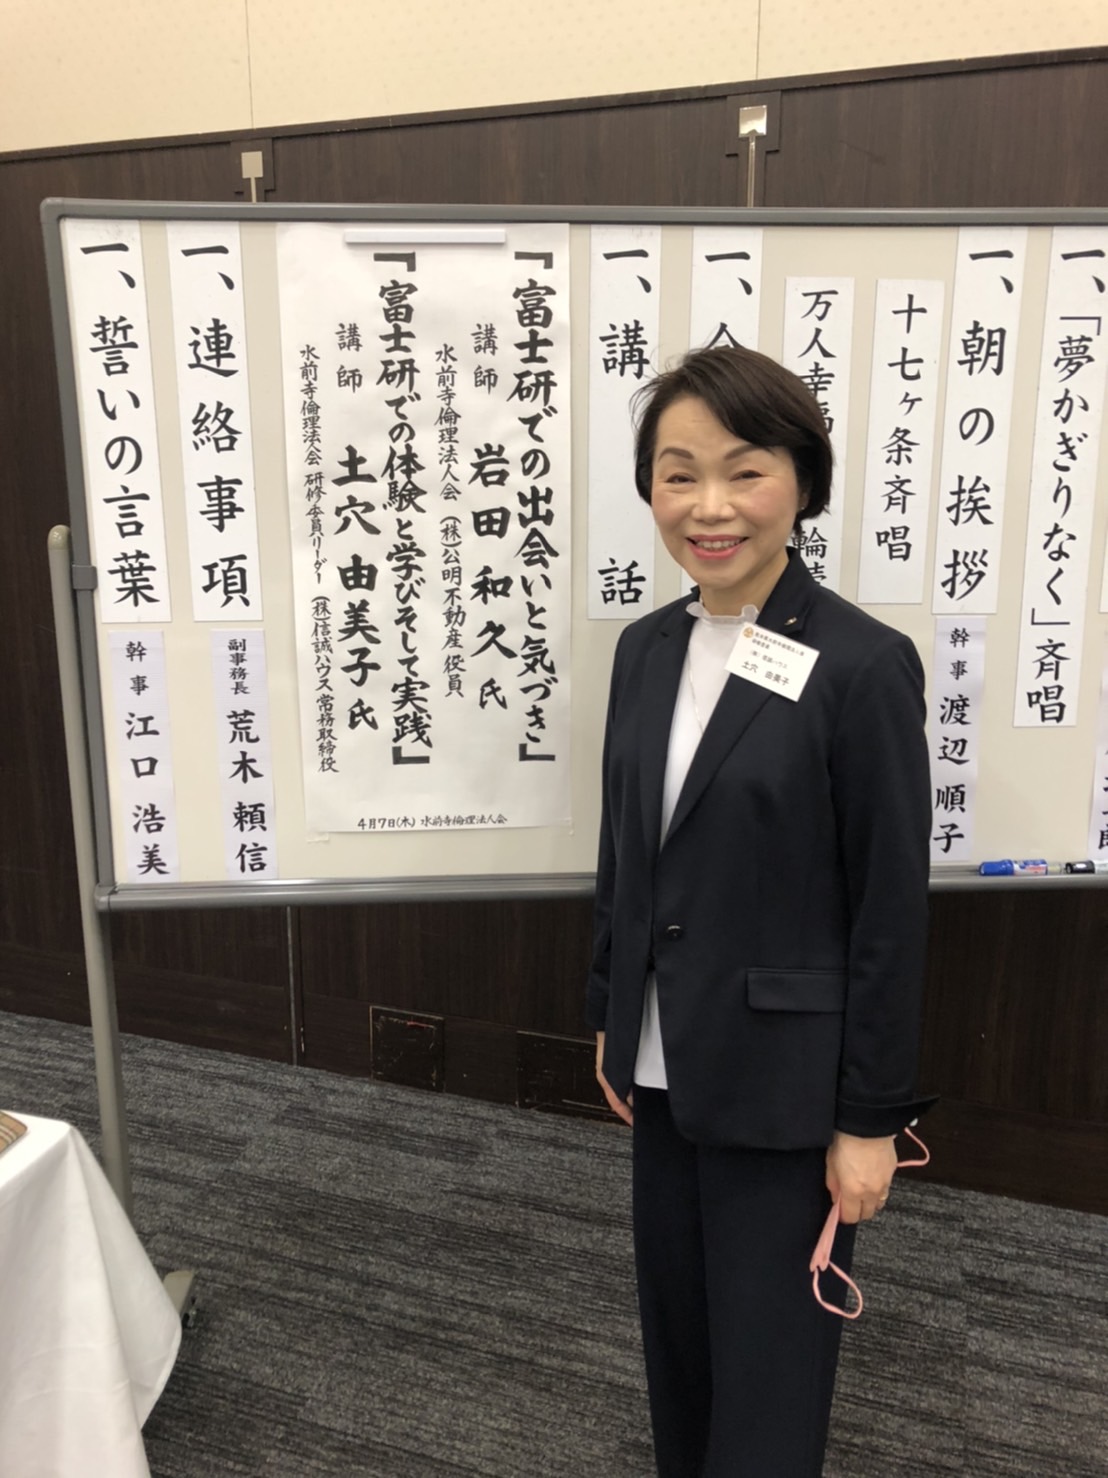 一、「夢かぎりなく」斉唱
一、朝の挨拶
幹事 渡辺 順子
十七ヶ条斉唱
万人幸福
一、
一、講話
『富士研での出会いと気づき』
講師 岩田 和久 氏
水前寺倫理法人会 (株)公明不動産 役員
『富士研での体験と学びそして実践』
講師 土穴 由美子 氏
水前寺倫理法人会 研修委員リーダー (株)信誠ハウス 常務取締役
4月7日(木) 水前寺倫理法人会
一、連絡事項
副事務長 荒木 頼信
一、誓いの言葉
幹事 江口 浩美
土穴 由美子